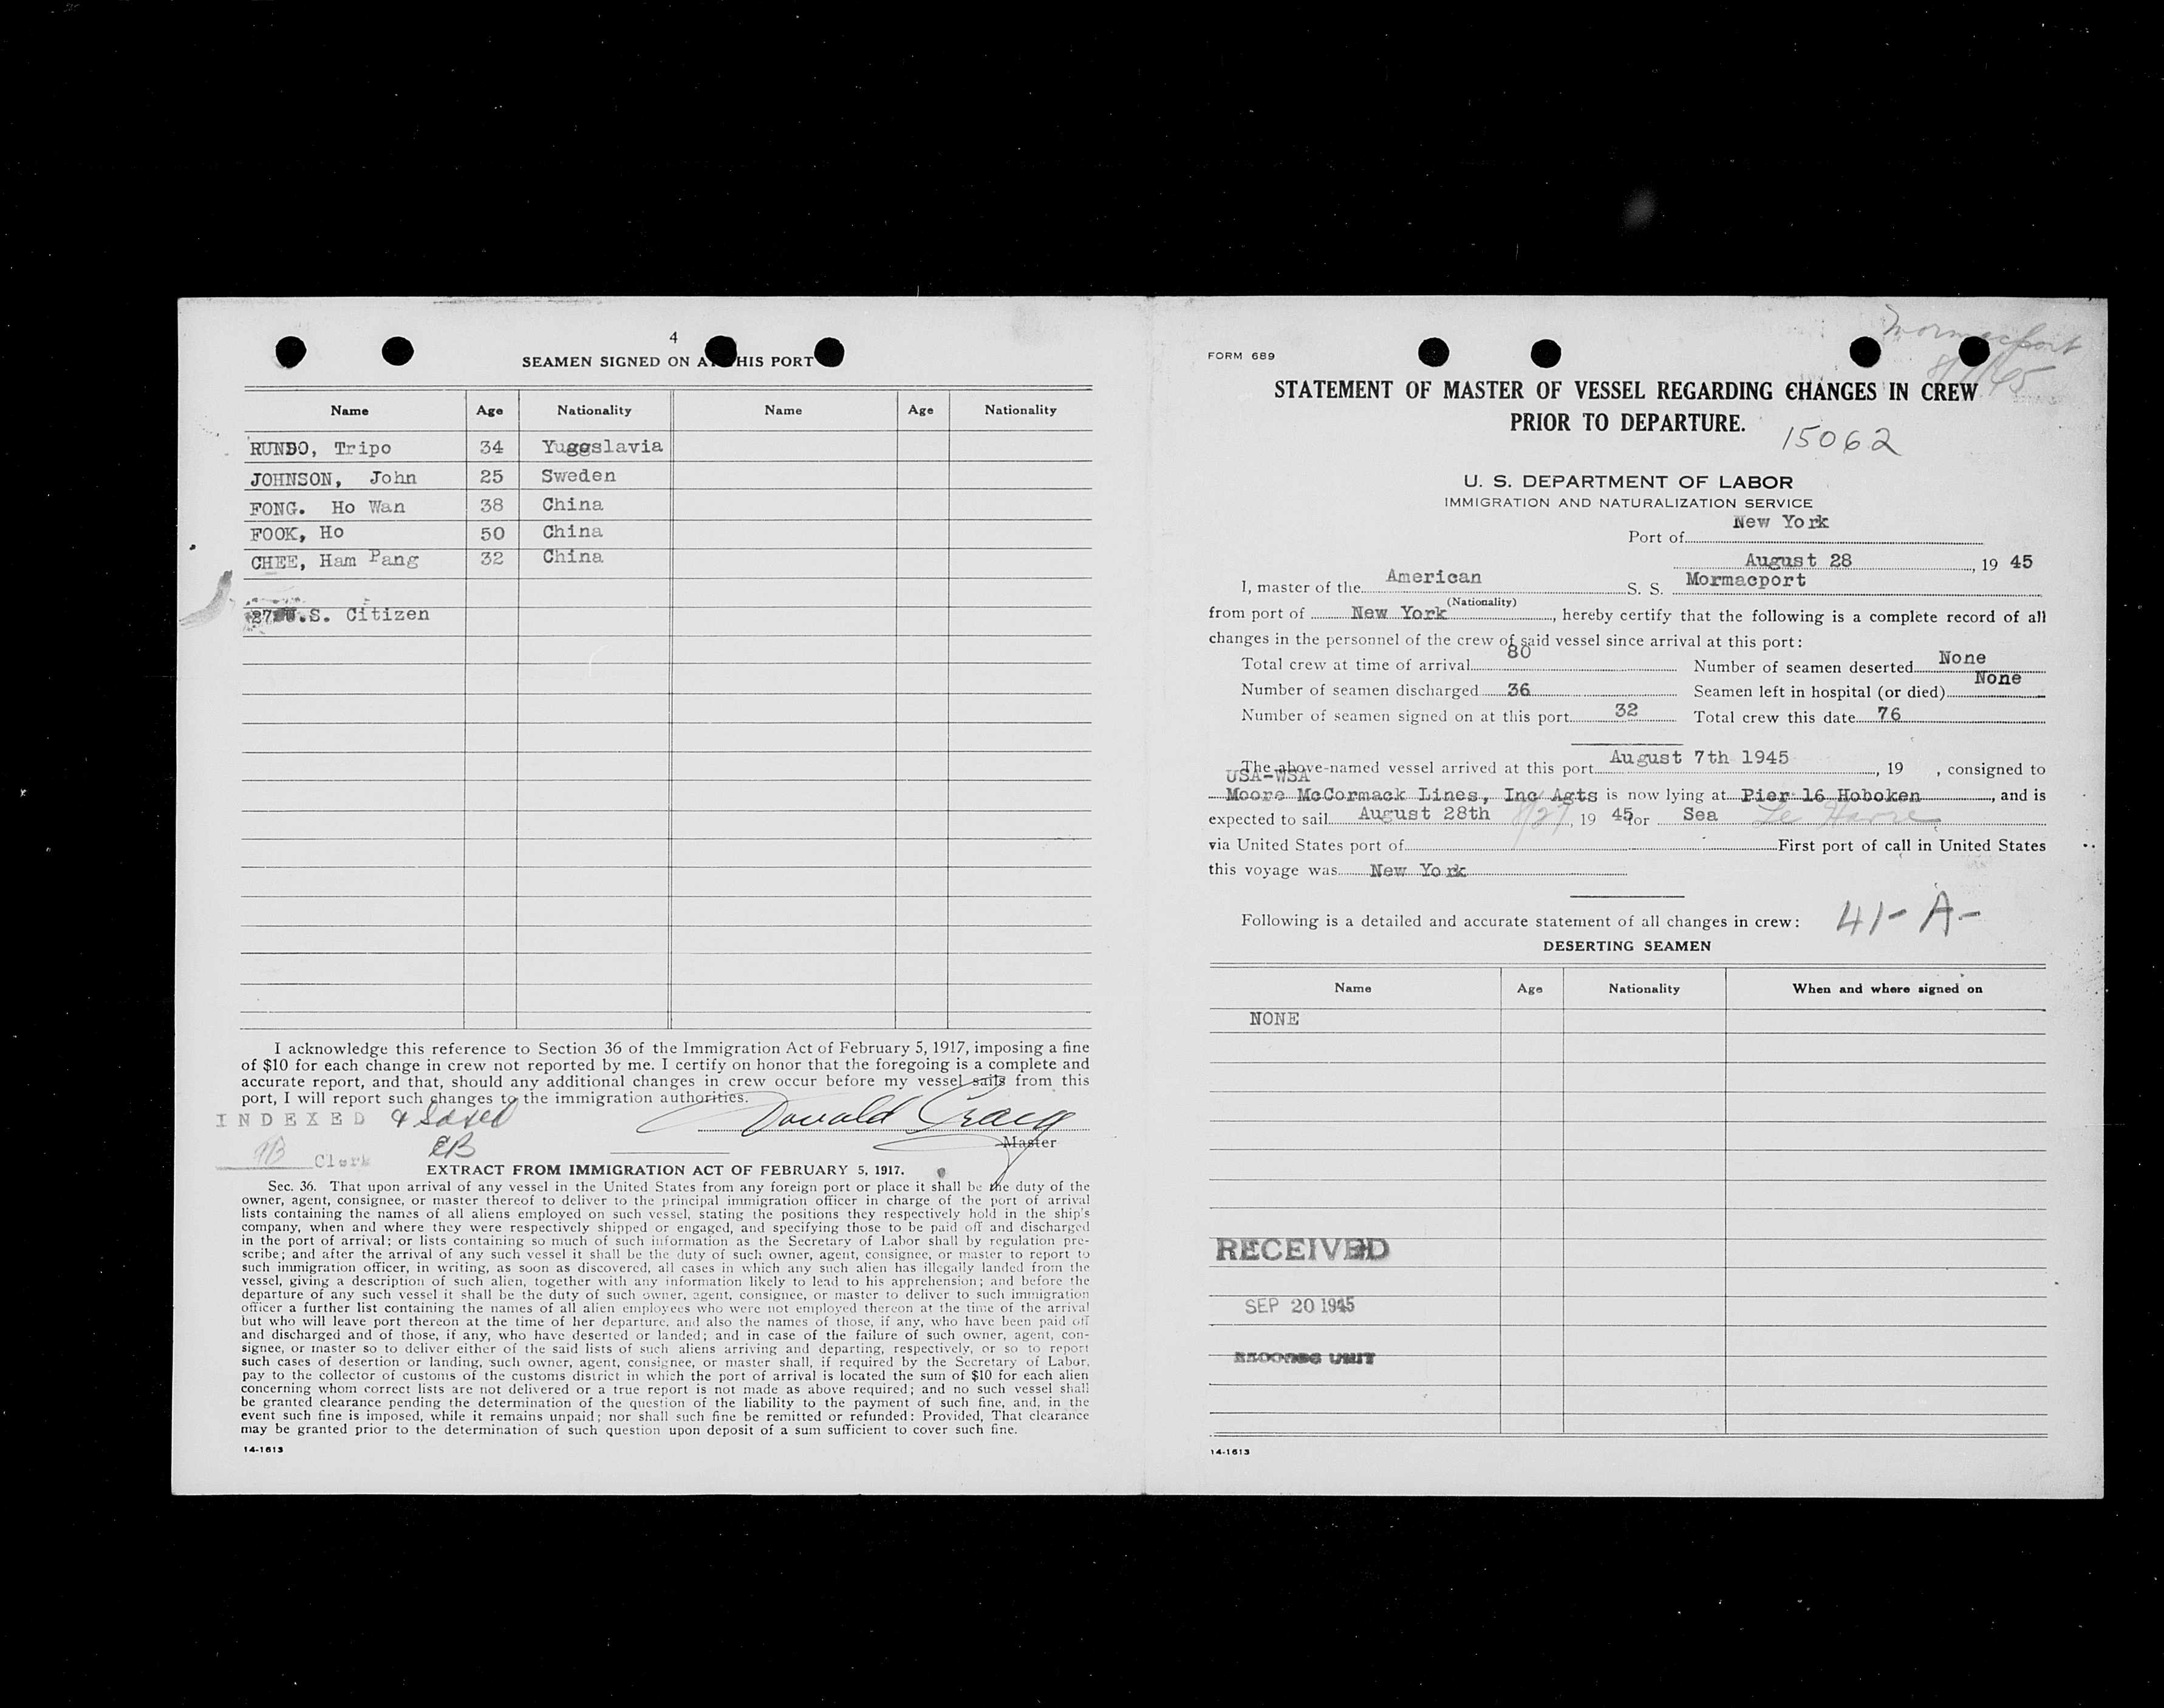 4
SEAMEN SIGNED ON A HIS PORT
Name Age Nationality Name Age Nationality
RUNDO, Tripo 34 Yugoslavia
JOHNSON, John 25 Sweden
FONG. Ho Wan 38 China
FOOK, Ho 50 China
CHEE, Ham Pang 32 China
27 U.S. Citizen
I acknowledge this reference to Section 36 of the Immigration Act of February 5, 1917, imposing a fine
of $10 for each change in crew not reported by me. I certify on honor that the foregoing is a complete and
accurate report, and that, should any additional changes in crew occur before my vessel sails from this
port, I will report such changes to the immigration authorities.
INDEXED
Donald Craig
Master
Clerk
EB
EXTRACT FROM IMMIGRATION ACT OF FEBRUARY 5, 1917.
Sec. 36. That upon arrival of any vessel in the United States from any foreign port or place it shall be the duty of the
owner, agent, consignee, or master thereof to deliver to the principal immigration officer in charge of the port of arrival
lists containing the names of all aliens employed on such vessel, stating the positions they respectively hold in the ship's
company, when and where they were respectively shipped or engaged, and specifying those to be paid off and discharged
in the port of arrival; or lists containing so much of such information as the Secretary of Labor shall by regulation pre-
scribe; and after the arrival of any such vessel it shall be the duty of such owner, agent, consignee, or master to report to
such immigration officer, in writing, as soon as discovered, all cases in which any such alien has illegally landed from the
vessel, giving a description of such alien, together with any information likely to lead to his apprehension; and before the
departure of any such vessel it shall be the duty of such owner, agent, consignee, or master to deliver to such immigration
officer a further list containing the names of all alien employees who were not employed thereon at the time of the arrival
but who will leave port thereon at the time of her departure, and also the names of those, if any, who have been paid off
and discharged and of those, if any, who have deserted or landed; and in case of the failure of such owner, agent, con-
signee, or master so to deliver either of the said lists of such aliens arriving and departing, respectively, or so to report
such cases of desertion or landing, such owner, agent, consignee, or master shall, if required by the Secretary of Labor,
pay to the collector of customs of the customs district in which the port of arrival is located the sum of $10 for each alien
concerning whom correct lists are not delivered or a true report is not made as above required; and no such vessel shall
be granted clearance pending the determination of the question of the liability to the payment of such fine, and, in the
event such fine is imposed, while it remains unpaid; nor shall such fine be remitted or refunded: Provided, That clearance
may be granted prior to the determination of such question upon deposit of a sum sufficient to cover such fine.
14-1613
Mormacport
FORM 689
STATEMENT OF MASTER OF VESSEL REGARDING CHANGES IN CREW
PRIOR TO DEPARTURE.
15062
U. S. DEPARTMENT OF LABOR
IMMIGRATION AND NATURALIZATION SERVICE
Port of New York
August 28, 19 45
I, master of the American S. S. Mormacport
(Nationality)
from port of New York, hereby certify that the following is a complete record of all
changes in the personnel of the crew of said vessel since arrival at this port:
Total crew at time of arrival 80 Number of seamen deserted None
Number of seamen discharged 36 Seamen left in hospital (or died) None
Number of seamen signed on at this port 32 Total crew this date 76
The above-named vessel arrived at this port August 7th 1945, 19 , consigned to
USA-WSA
Moore McCormack Lines, Inc Agts is now lying at Pier 16 Hoboken, and is
expected to sail August 28th 8/27, 19 45 for Sea Le Havre
via United States port of First port of call in United States
this voyage was New York
Following is a detailed and accurate statement of all changes in crew: 41-A-
DESERTING SEAMEN
Name Age Nationality When and where signed on
NONE
RECEIVED
SEP 20 1945
RECORDS UNIT
14-1613